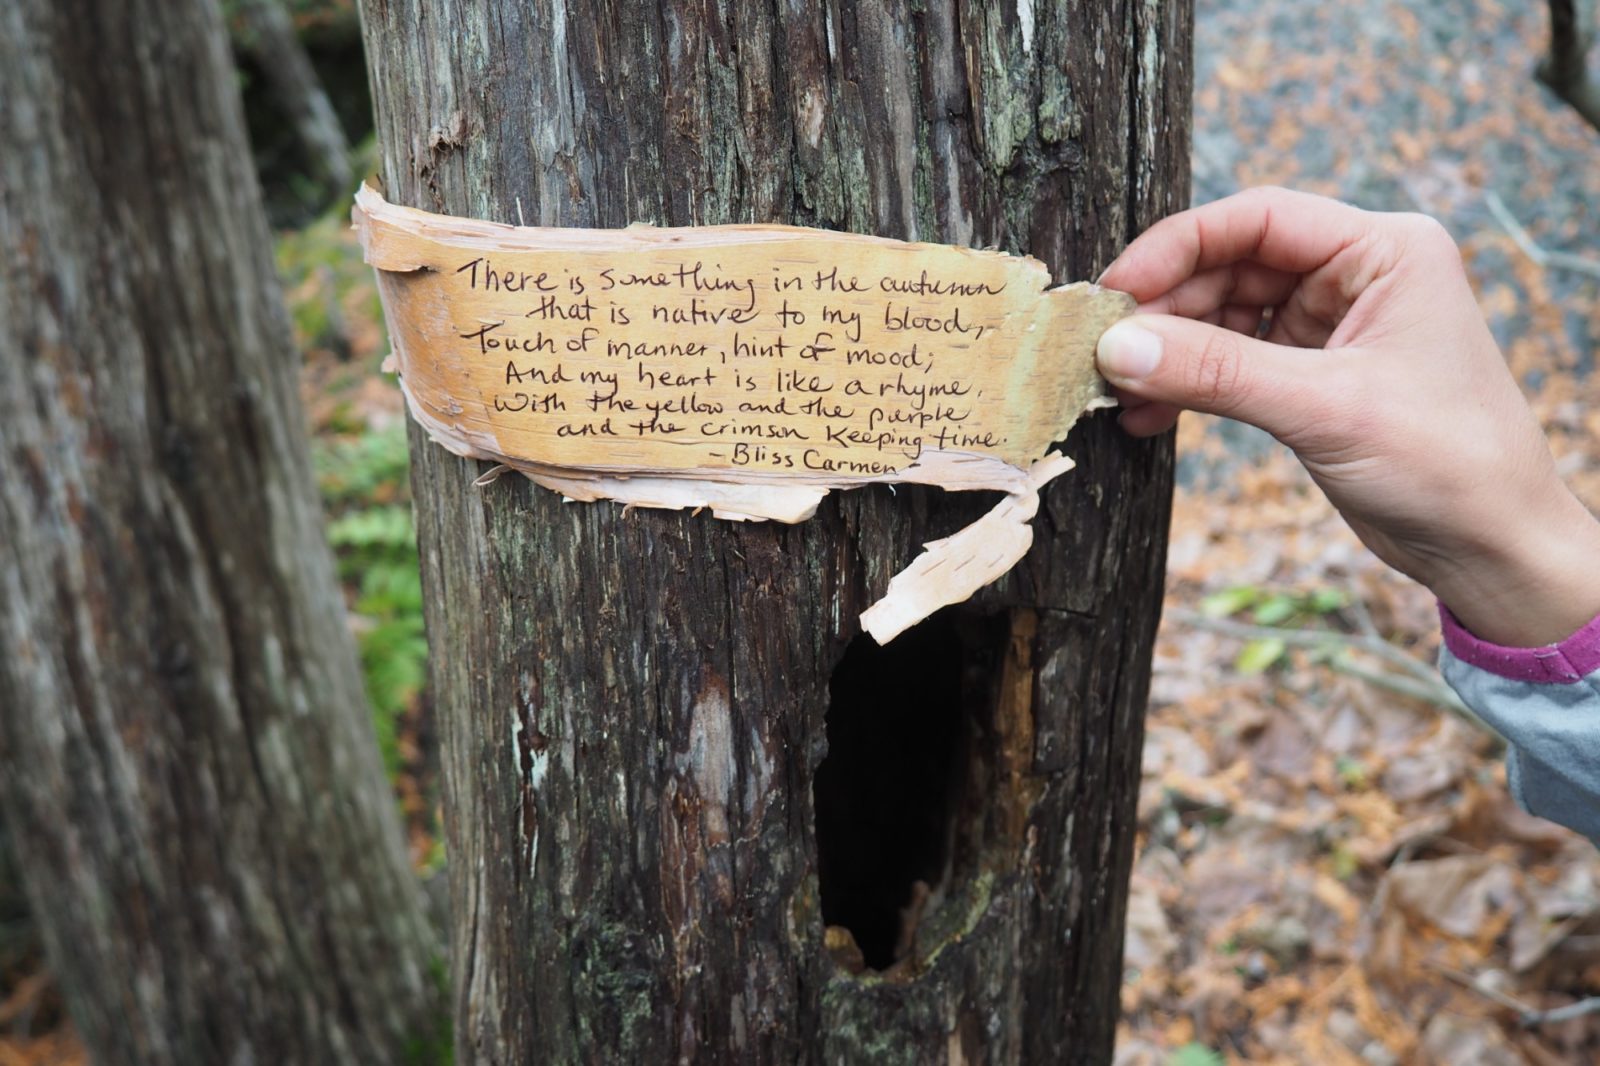 There is something in the autumn
that is native to my blood,
Touch of manner, hint of mood;
And my heart is like a rhyme,
With the yellow and the purple
and the crimson keeping time.
- Bliss Carmen -